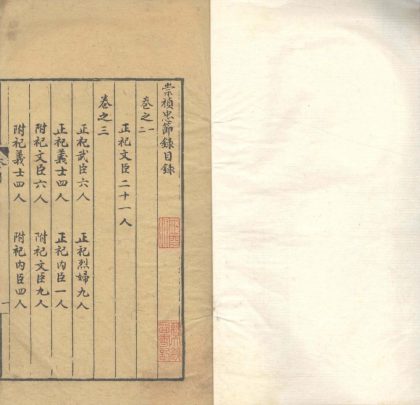 崇禎忠節錄目錄
卷之一
二
正祀文臣二十一人
卷之三
正祀武臣六人 正祀烈婦九人
正祀義士四人 正祀内臣一人
附祀文臣六人 附祀文臣九人
附祀義士四人 附祀内臣四人
一